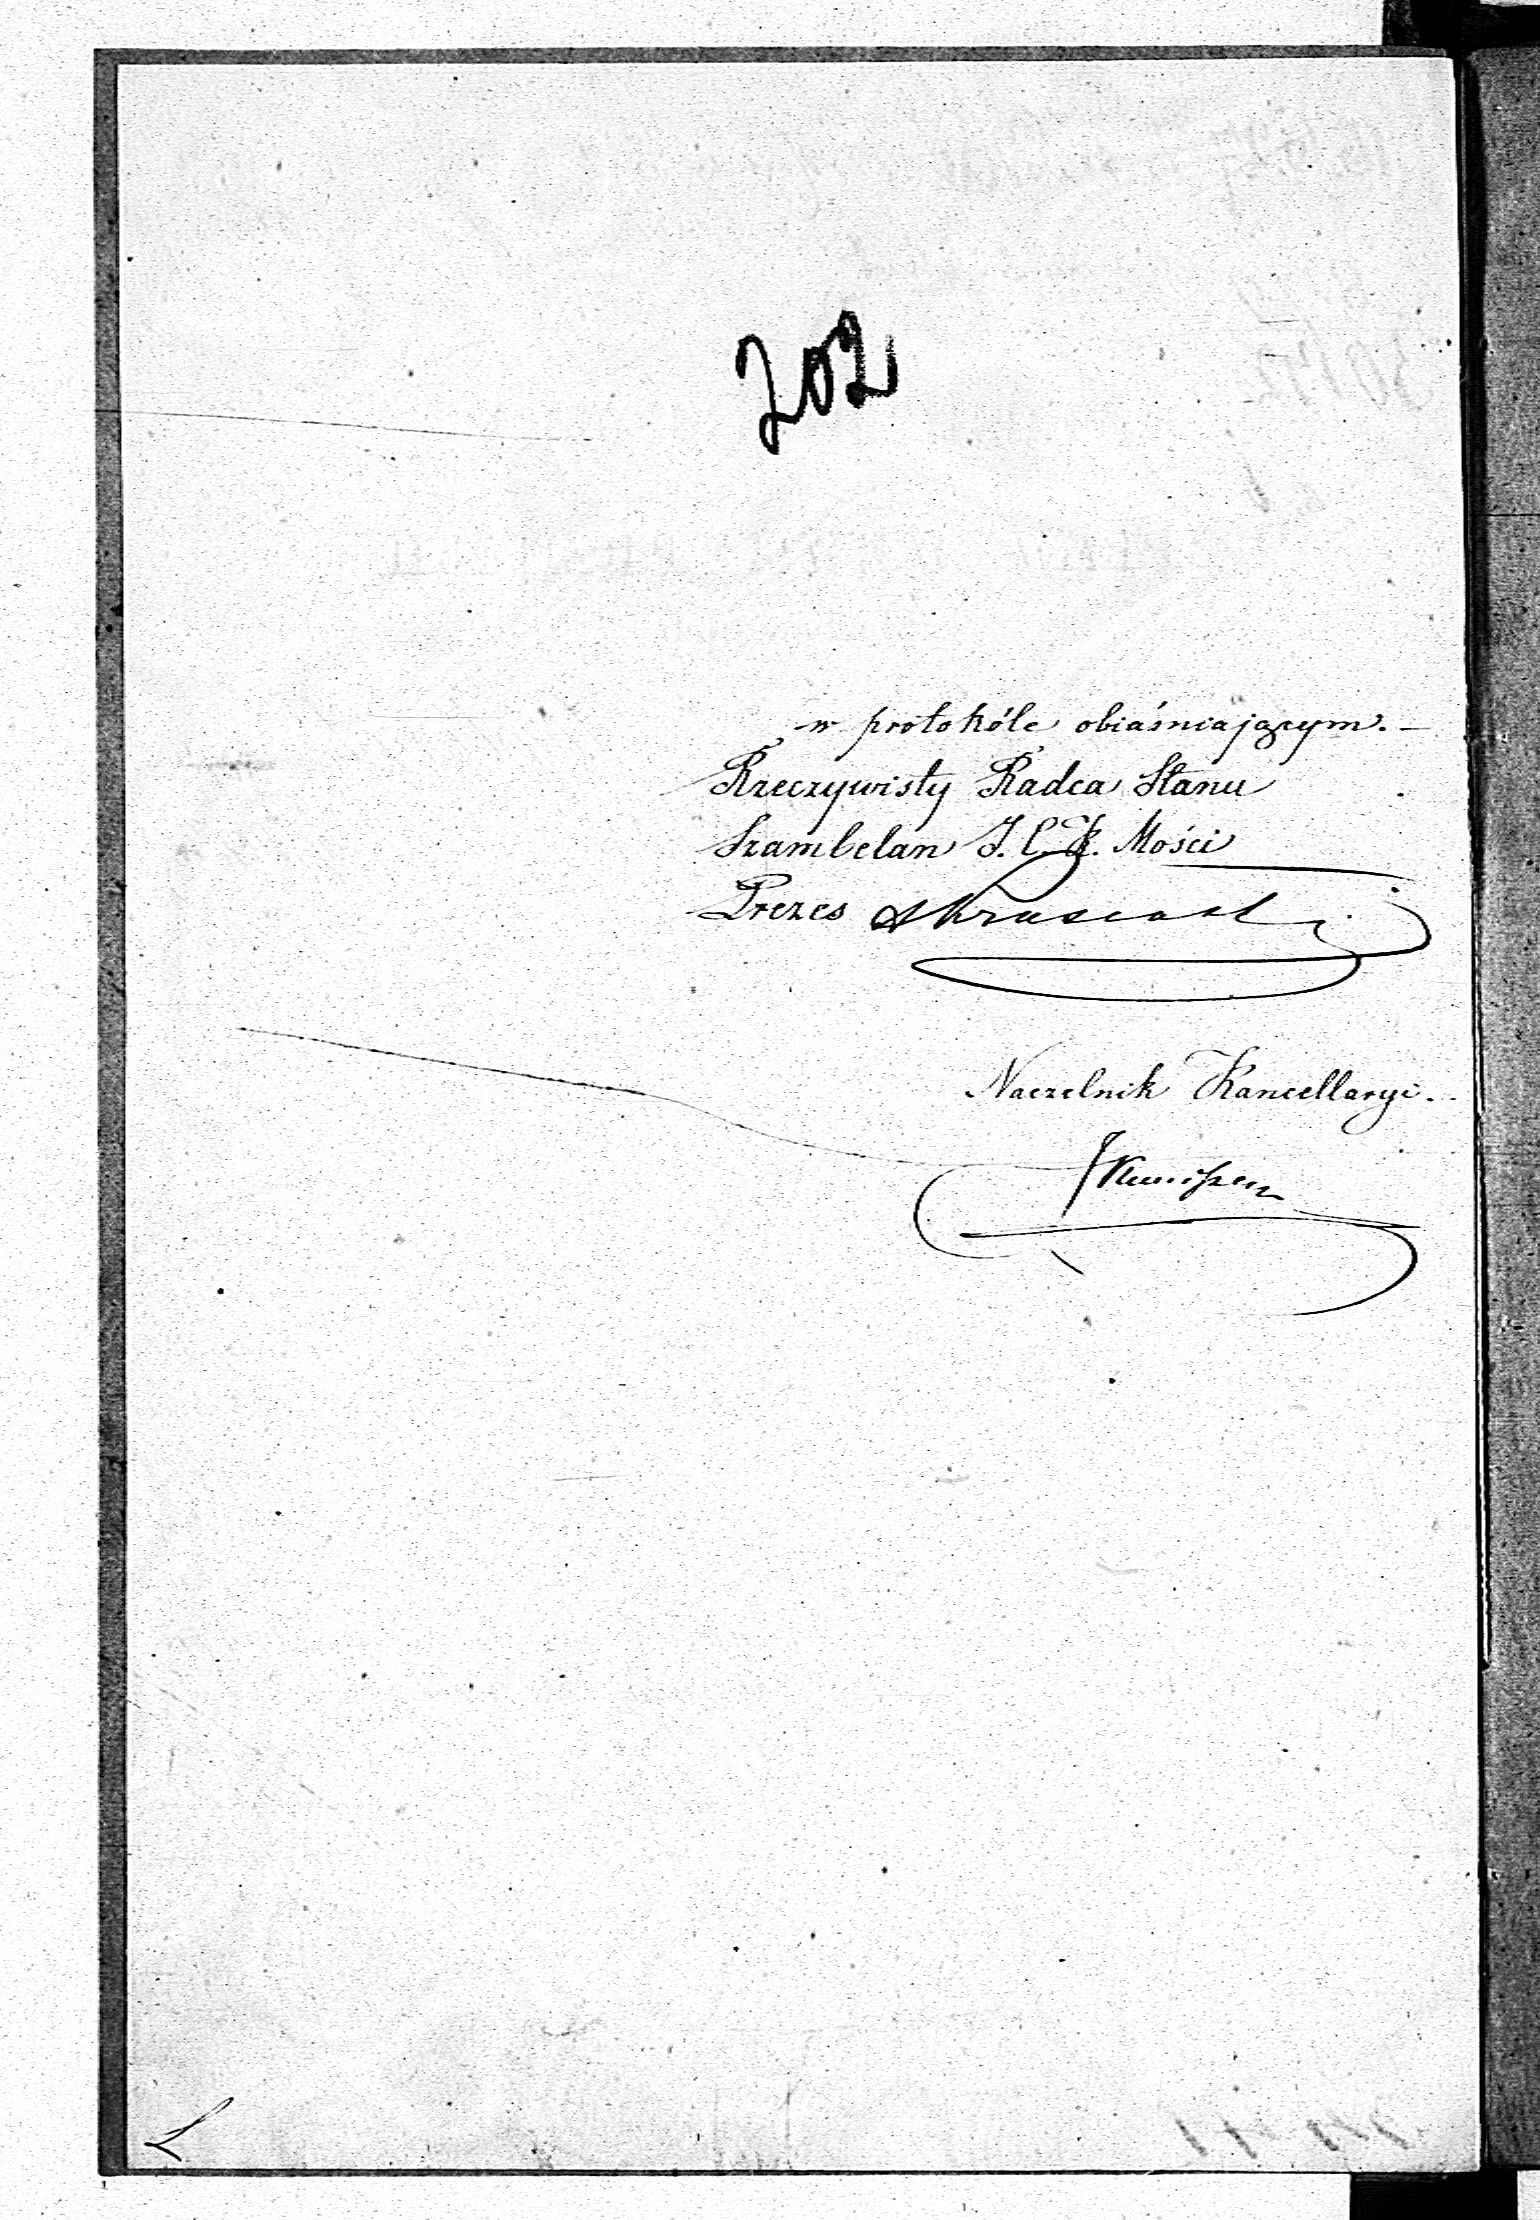 202
w protokóle obiaśniającym. —
Rzeczywisty Radca Stanu
Szambelan J. C. K. Mości
Prezes
Naczelnik Kancellaryi.